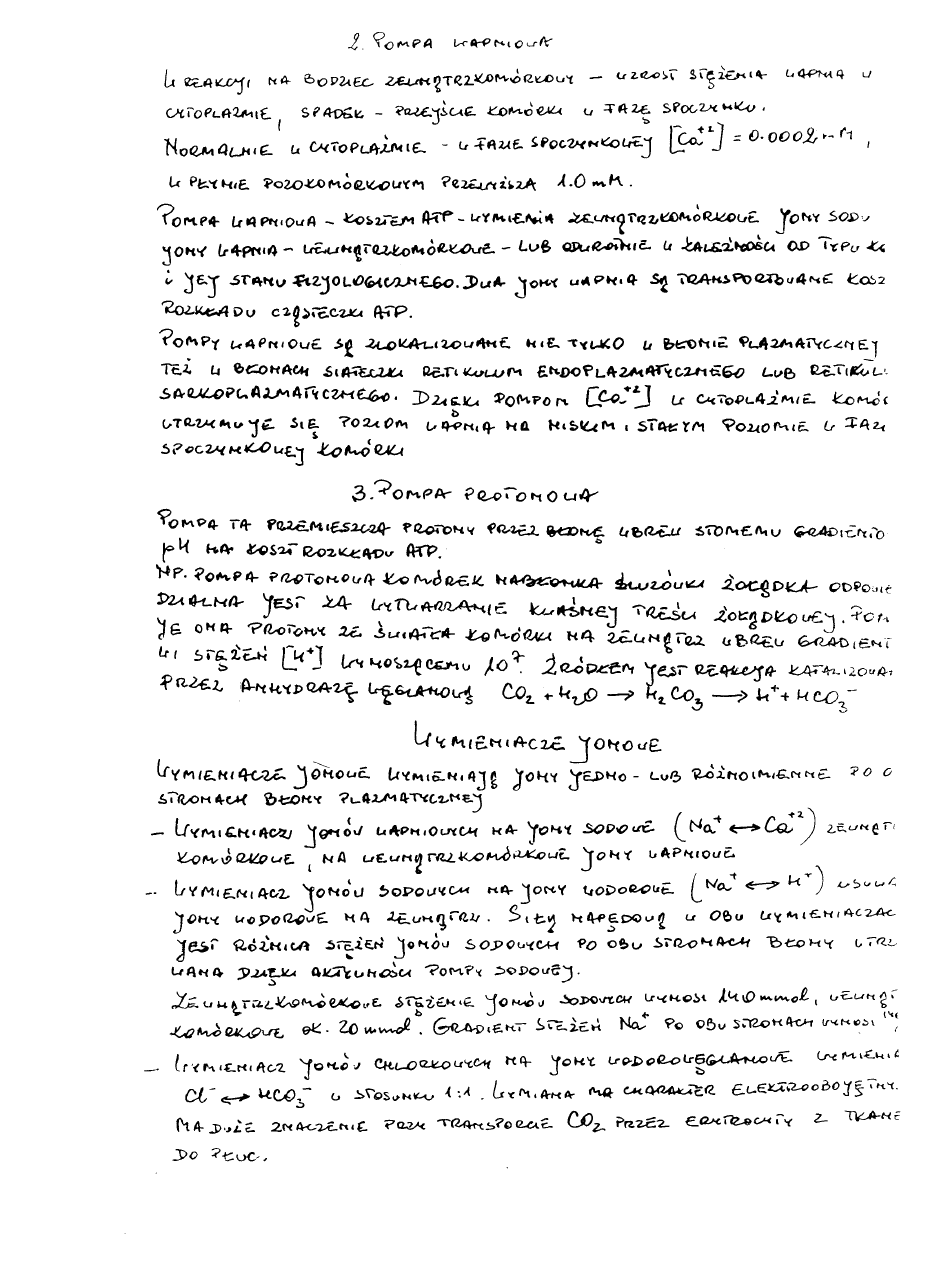 2. POMPA WAPNIOWA
W REAKCJI NA BODZIEC ZEWNĄTRZKOMÓRKOWY – WZROST STĘŻENIA WAPNIA W
CYTOPLAZMIE, SPADEK – PRZEJŚCIE KOMÓRKI W FAZĘ SPOCZYNKU.
NORMALNIE W CYTOPLAŹMIE – W FAZIE SPOCZYNKOWEJ [Ca+2] = 0.0002 mM,
W PŁYNIE POZOKOMÓRKOWYM PRZEWYŻSZA 1.0 mM.
POMPA WAPNIOWA – KOSZTEM ATP – WYMIENIA ZEWNĄTRZKOMÓRKOWE JONY SODU
JONY WAPNIA – WEWNĄTRZKOMÓRKOWE – LUB ODWROTNIE W ZALEŻNOŚCI OD TYPU KO
i JEJ STANU FIZJOLOGICZNEGO. DWA JONY WAPNIA SĄ TRANSPORTOWANE KOSZ
ROZKŁADU CZĄSTECZKI ATP.
POMPY WAPNIOWE SĄ ZLOKALIZOWANE NIE TYLKO W BŁONIE PLAZMATYCZNEJ
TEŻ W BŁONACH SIATECZKI RETIKULUM ENDOPLAZMATYCZNEGO LUB RETIKUL
SARKOPLAZMATYCZNEGO. DZIĘKI POMPOM [Ca+2] W CYTOPLAŹMIE KOMÓR
UTRZYMUJE SIĘ POZIOM WAPNIA NA NISKIM i STAŁYM POZIOMIE W FAZI
SPOCZYNKOWEJ KOMÓRKI
3. POMPA PROTONOWA
POMPA TA PRZEMIESZCZA PROTONY PRZEZ BŁONĘ WBREW STROMEMU GRADIENTO
pH NA KOSZT ROZKŁADU ATP.
NP. POMPA PROTONOWA KOMÓREK NABŁONKA ŚLUZÓWKI ŻOŁĄDKA ODPOWIE
DZIALNA JEST ZA WYTWARZANIE KWAŚNEJ TREŚCI ŻOŁĄDKOWEJ. POM
JE ONA PROTONY ZE ŚWIATŁA KOMÓRKI NA ZEWNĄTRZ WBREW GRADIENT
WI STĘŻEŃ [H+] WYNOSZĄCEMU 10⁷. ŹRÓDŁEM JEST REAKCJA KATALIZOWA
PRZEZ ANHYDRAZĘ WĘGLANOWĄ CO₂ + H₂O → H₂CO₃ → H⁺ + HCO₃⁻
WYMIENIACZE JONOWE
WYMIENIACZE JONOWE WYMIENIAJĄ JONY JEDNO- LUB RÓŻNOIMIENNE PO O
STRONACH BŁONY PLAZMATYCZNEJ
– WYMIENIACZ JONÓW WAPNIOWYCH NA JONY SODOWE (Na⁺ ↔ Ca⁺²) ZEWNĄT
KOMÓRKOWE, NA WEWNĄTRZKOMÓRKOWE JONY WAPNIOWE
– WYMIENIACZ JONÓW SODOWYCH NA JONY WODOROWE (Na⁺ ↔ H⁺) USUWA
JONY WODOROWE NA ZEWNĄTRZ. SIŁĄ NAPĘDOWĄ W OBU WYMIENIACZAC
JEST RÓŻNICA STĘŻEŃ JONÓW SODOWYCH PO OBU STRONACH BŁONY UTRZ
WANA DZIĘKI AKTYWNOŚCI POMPY SODOWEJ.
ZEWNĄTRZKOMÓRKOWE STĘŻENIE JONÓW SODOWYCH WYNOSI 140 mmol, WEWNĄT
KOMÓRKOWE OK. 20 mmol. GRADIENT STĘŻEŃ Na⁺ PO OBU STRONACH WYNOSI
– WYMIENIACZ JONÓW CHLORKOWYCH NA JONY WODOROWĘGLANOWE WYMIENIA
Cl⁻ ↔ HCO₃⁻ W STOSUNKU 1:1. WYMIANA MA CHARAKTER ELEKTROOBOJĘTNY.
MA DUŻE ZNACZENIE PRZY TRANSPORCIE CO₂ PRZEZ ERYTROCYTY Z TKANE
DO PŁUC.